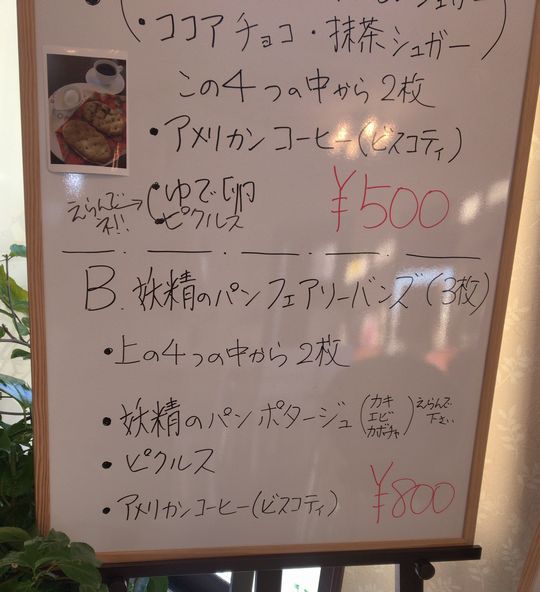 シュガー
(・ココアチョコ・抹茶シュガー)
この4つの中から2枚
・アメリカンコーヒー(ビスコティ)
えらんでネ!!→(・ゆで卵
・ピクルス
¥500
B.妖精のパンフェアリーバンズ(3枚)
・上の4つの中から2枚
・妖精のパンポタージュ(カキ エビ カボチャ)えらんで下さい
・ピクルス
・アメリカンコーヒー(ビスコティ)
¥800